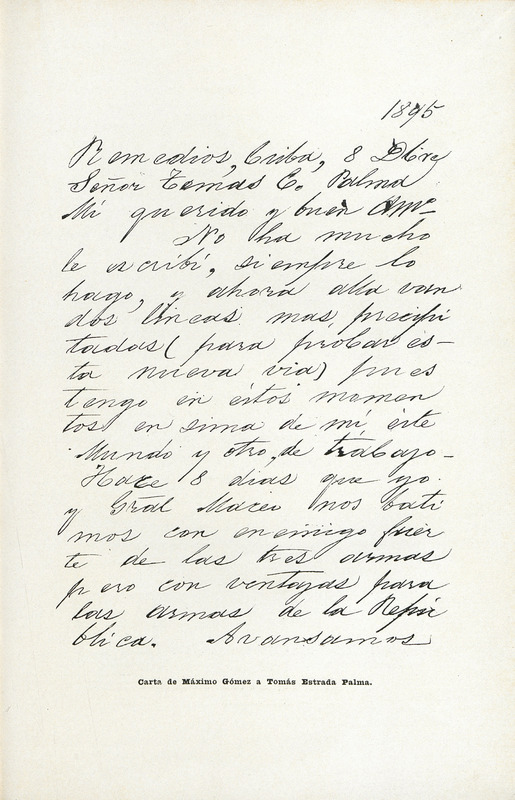 1895
Remedios, Cuba, 8 Dbre
Señor Tomás E. Palma
Mi querido y buen Amº
No ha mucho
le escribí, siempre lo
hago, y ahora alla van
dos lineas mas, precipi
tadas (para probar és-
ta nueva via) pues
tengo en éstos momen
tos en sima de mí, éste
Mundo y otro, de trabajo-
Hace 8 dias que yo
y Gral Maceo nos bati
mos con enemigo fuer
te de las tres armas
pero con ventajas para
las armas de la Repú
blica. Avansamos
Carta de Máximo Gómez a Tomás Estrada Palma.